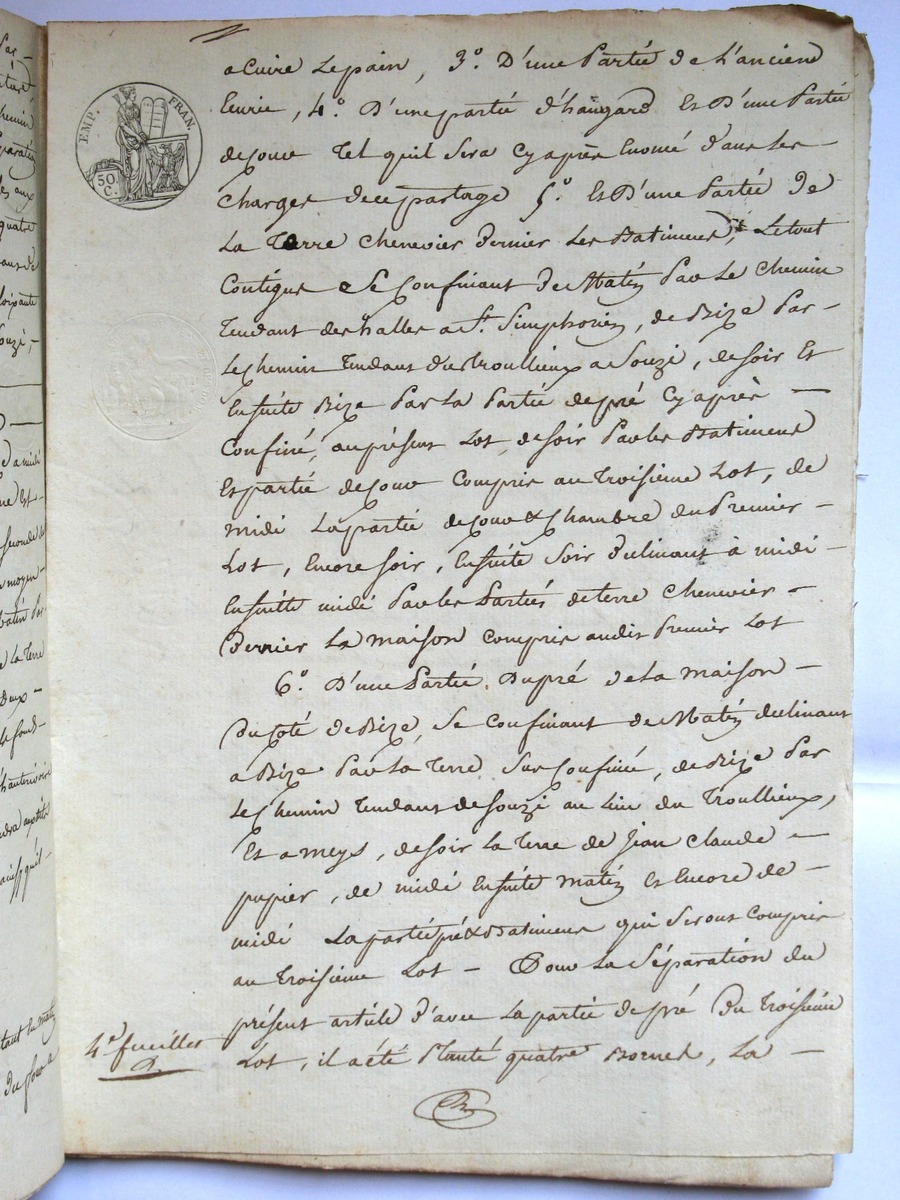 EMP. FRAN.
50 C.
a Cuire Le pain, 3.º D'une Partie de L'ancien
Ecurie, 4.º D'une partie d'hangard Et D'une Partie
de Cour tel quil Sera Cy après Enomé dans Les
Charges de ce partage 5.º Et D'une Partie De
La Terre Chenevier Dernier Les Batiments, Le tout
Contigus & Se Confinant De Matin Par Le Chemin
tendant des halles a St. Simphorien, de Bize Par
Le Chemin tendant du troullieux a Souzi, de soir Et
Ensuite Bize Par La Partie de pré Cy après —
Confiné, au présent Lot, de soir Par les Batiments
Et partie de Cour Compris au Troisieme Lot, de
midi La partie de Cour & Chambre du Premier —
Lot, Encore soir, Ensuite Soir Déclinant à midi —
Ensuitte midi Par les Parties de terre Chenevier —
Derrier La maison Compris audit Premier Lot
6.º D'une Partie Du pré de La maison —
Du Coté de Bize, Se Confinant de Matin declinant
a Bize Par La Terre Sus Confiné, de Bize Par
Le Chemin Tendant de Souzi au Lieu du Troullieux,
Et a meys, de soir La Terre de Jean Claude —
papier, de midi Ensuite matin Et Encore de —
midi La partie pré & Batiments qui Seront Compris
au Troisieme Lot — Pour La Séparation du
présent article d'avec La partie de pré Du Troisiéme
Lot, il a été Planté quatre Bornes, La —
4e feuillet